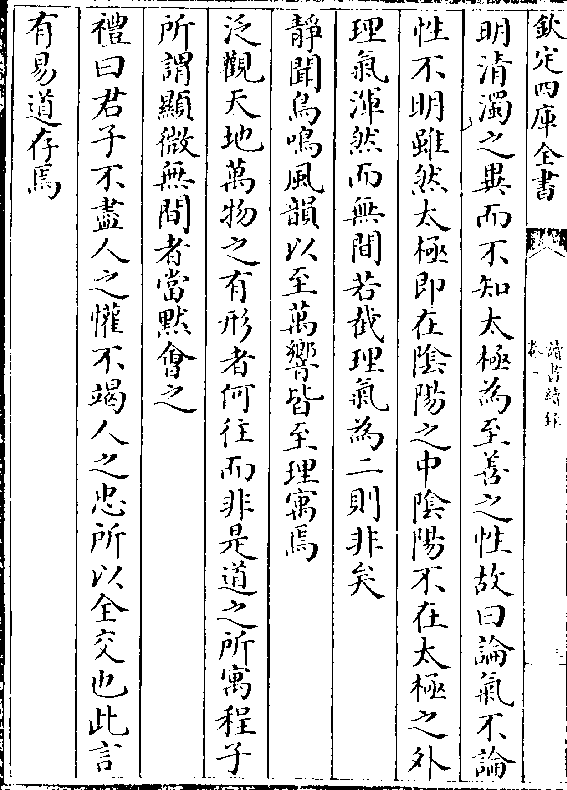 欽定四庫全書
讀書續錄
卷一
明清濁之異而不知太極為至善之性故曰論氣不論
性不明雖然太極即在陰陽之中陰陽不在太極之外
理氣渾然而無間若截理氣為二則非矣
靜聞鳥鳴風韻以至萬響皆至理寓焉
泛觀天地萬物之有形者何往而非是道之所寓程子
所謂顯微無間者當黙會之
禮曰君子不盡人之懽不竭人之忠所以全交也此言
有易道存焉